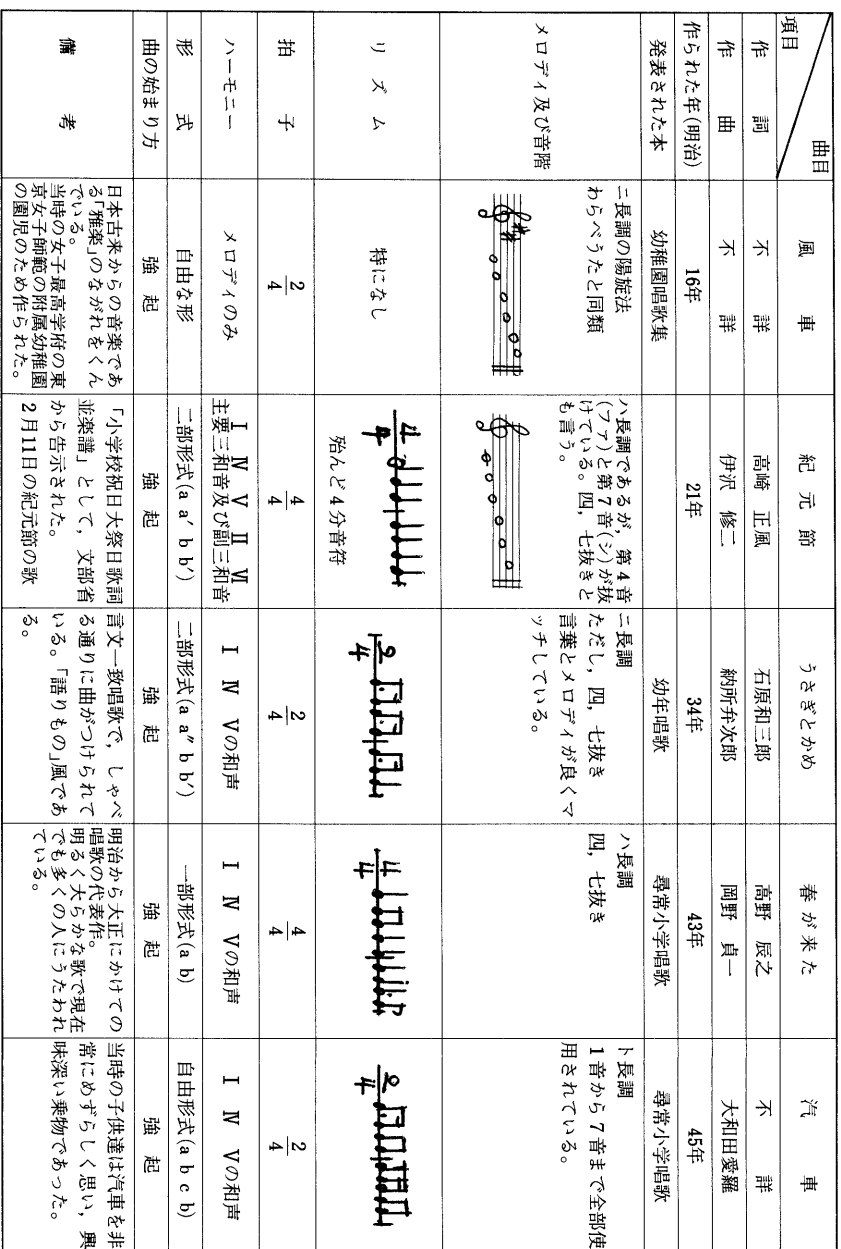 項目　曲目
風車
紀元節
うさぎとかめ
春が来た
汽車
作詞
不詳
高崎 正風
石原和三郎
高野 辰之
不詳
作曲
不詳
伊沢 修二
納所弁次郎
岡野 貞一
大和田愛羅
作られた年(明治)
16年
21年
34年
43年
45年
発表された本
幼稚園唱歌集
幼年唱歌
尋常小学唱歌
尋常小学唱歌
メロディ及び音階
ニ長調の陽旋法
わらべうたと同類
ハ長調であるが，第4音
(ファ)と第7音(シ)が抜
けている。四，七抜きと
も言う。
ニ長調
ただし，四，七抜き
言葉とメロディが良くマ
ッチしている。
ハ長調
四，七抜き
ト長調
1音から7音まで全部使
用されている。
リズム
特になし
4
4
殆んど4分音符
2
4
4
4
2
4
拍子
2
4
4
4
2
4
4
4
2
4
ハーモニー
メロディのみ
Ⅰ Ⅳ Ⅴ Ⅱ Ⅵ
主要三和音及び副三和音
Ⅰ Ⅳ Ⅴの和声
Ⅰ Ⅳ Ⅴの和声
Ⅰ Ⅳ Ⅴの和声
形式
自由な形
二部形式(a a′ b b′)
二部形式(a a″ b b′)
一部形式(a b)
自由形式(a b c b)
曲の始まり方
強起
強起
強起
強起
強起
備考
日本古来からの音楽であ
る「雅楽」のながれをくん
でいる。
当時の女子最高学府の東
京女子師範の附属幼稚園
の園児のため作られた。
「小学校祝日大祭日歌詞
並楽譜」として，文部省
から告示された。
2月11日の紀元節の歌
言文一致唱歌で，しゃべ
る通りに曲がつけられて
いる。「語りもの」風であ
る。
明治から大正にかけての
唱歌の代表作。
明るく大らかな歌で現在
でも多くの人にうたわれ
ている。
当時の子供達は汽車を非
常にめずらしく思い，興
味深い乗物であった。